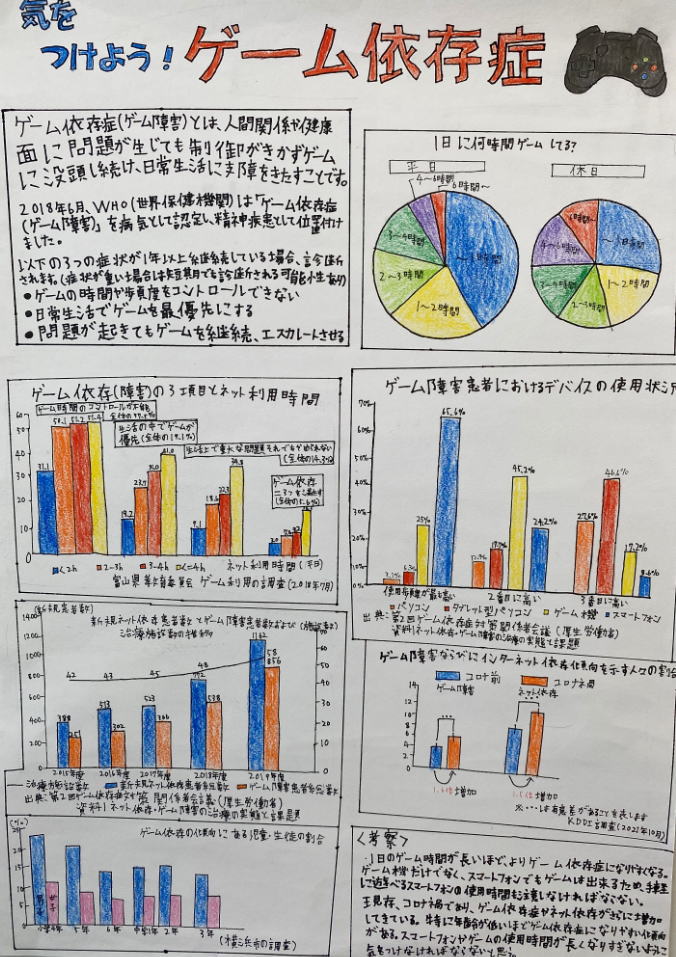 気を
つけよう!
ゲーム依存症
ゲーム依存症(ゲーム障害)とは、人間関係や健康
面に問題が生じても制御がきかずゲーム
に没頭し続け、日常生活に支障をきたすことです。
2018年6月、WHO(世界保健機関)は「ゲーム依存症
(ゲーム障害)」を病気として認定し、精神疾患として位置付け
ました。
以下の3つの症状が1年以上継続している場合、診断
されます。(症状が重い場合は短期でも診断される可能性あり)
●ゲームの時間や頻度をコントロールできない
●日常生活でゲームを最優先にする
●問題が起きてもゲームを継続、エスカレートさせる
1日に何時間ゲームしてる?
平日
休日
4〜6時間
6時間〜
3〜4時間
2〜3時間
1〜2時間
〜1時間
6時間〜
4〜6時間
3〜4時間
2〜3時間
1〜2時間
〜1時間
ゲーム依存(障害)の3項目とネット利用時間
ゲーム時間のコントロールが不能
生活の中でゲームが
優先(全体の19.1%)
ゲーム依存
60
50
40
30
20
10
0
50.1
31.1
13.2
23.7
31.0
41.0
9.1
18.6
22.3
34.8
<2h
2-3h
3-4h
<=4h
ネット利用時間(平日)
富山県教育委員会 ゲーム利用の調査(2018年7月)
ゲーム障害患者におけるデバイスの使用状況
70%
60%
50%
40%
30%
20%
10%
0%
6.3%
25%
65.6%
45.2%
24.2%
27.6%
17.2%
使用頻度が最も高い
2番目に高い
3番目に高い
パソコン
タブレット型パソコン
ゲーム機
スマートフォン
出典:第2回ゲーム依存症対策関係者会議(厚生労働省)
資料1ネット依存・ゲーム障害の治療の実態と課題
(新規患者数)
新規ネット依存患者数とゲーム障害患者数および
(施設数)
治療施設数の推移
1400
1200
1000
800
600
400
200
0
70
60
50
40
30
20
10
0
42
43
45
48
58
388
251
513
302
523
366
772
538
1162
856
2015年度
2016年度
2017年度
2018年度
2019年度
治療施設数
新規ネット依存患者総数
ゲーム障害患者総数
出典:第2回ゲーム依存症対策関係者会議(厚生労働省)
資料1ネット依存・ゲーム障害の治療の実態と課題
ゲーム障害ならびにインターネット依存傾向を示す人々の割合
コロナ前
コロナ禍
ゲーム障害
ネット依存
14
12
10
8
6
4
2
0
1.6倍増加
1.5倍増加
※…は有意差があることを表します
KDDI調査(2021年10月)
(%)
ゲーム依存の傾向にある児童・生徒の割合
25
20
15
10
5
0
男子
女子
小学4年
5年
6年
中学1年
2年
3年
(横浜市の調査)
〈考察〉
・1日のゲーム時間が長いほど、よりゲーム依存症になりやすくなる。
ゲーム機だけでなく、スマートフォンでもゲームは出来るため、手軽
に遊べるスマートフォンの使用時間も注意しなければならない。
現在、コロナ禍であり、ゲーム依存症やネット依存がさらに増加
してきている。特に年齢が低いほどゲーム依存症になりやすい傾向
がある。スマートフォンやゲームの使用時間が長くなりすぎないように
気をつけなければならないと思う。